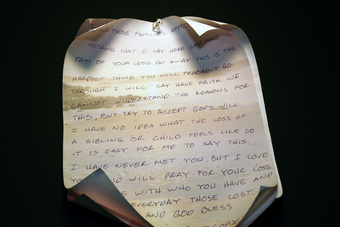 THOSE FAMILIES
NOTHING THAT I SAY HERE CAN MAKE
PAIN OF YOUR LOSS GO AWAY THIS IS THE
HARDEST THING YOU WILL PROBABLY GO
THROUGH I WILL SAY HAVE FAITH. WE
CANNOT UNDERSTAND THE REASONS FOR
THIS, BUT TRY TO ACCEPT GODS WILL
I HAVE NO IDEA WHAT THE LOSS OF
A SIBLING OR CHILD FEELS LIKE SO
IT IS EASY FOR ME TO SAY THIS.
I HAVE NEVER MET YOU, BUT I LOVE
YOU AND WILL PRAY FOR YOUR LOSS
WITH WHO YOU HAVE AND
EVERYDAY THOSE LOST.
AND GOD BLESS